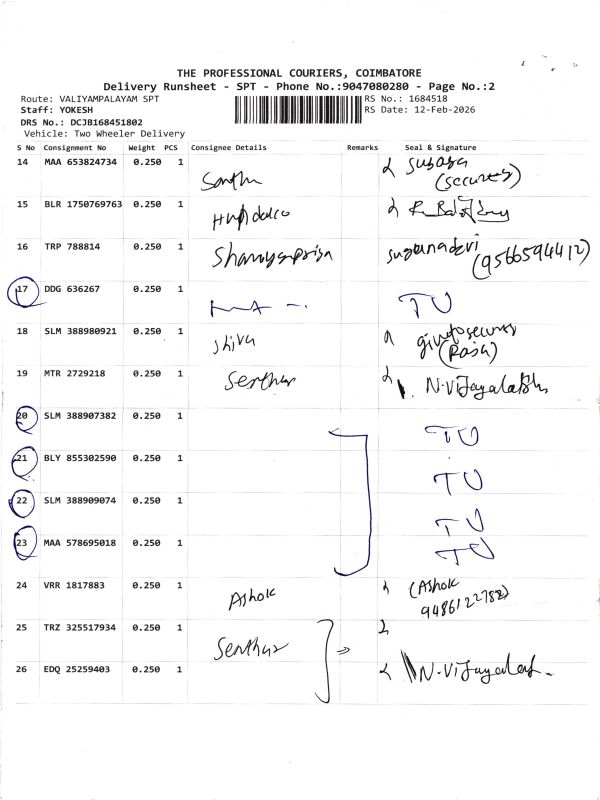 THE PROFESSIONAL COURIERS, COIMBATORE
Delivery Runsheet - SPT - Phone No.:9047080280 - Page No.:2
Route: VALIYAMPALAYAM SPT
RS No.: 1684518
Staff: YOKESH
RS Date: 12-Feb-2026
DRS No.: DCJB168451802
Vehicle: Two Wheeler Delivery
S No Consignment No Weight PCS Consignee Details Remarks Seal & Signature
14 MAA 653824734 0.250 1
(security)
15 BLR 1750769763 0.250 1
16 TRP 788814 0.250 1 Sharmyapriya sugunadevi
(9566594412)
17 DDG 636267 0.250 1 TU
18 SLM 388980921 0.250 1 shiva
(Raja)
19 MTR 2729218 0.250 1 Senthur N.Vijayalakshmi
20 SLM 388907382 0.250 1 TU
21 BLY 855302590 0.250 1 TU
22 SLM 388909074 0.250 1 TU
23 MAA 578695018 0.250 1 TU
24 VRR 1817883 0.250 1 Ashok (Ashok
9486122788)
25 TRZ 325517934 0.250 1 Senthur
26 EDQ 25259403 0.250 1